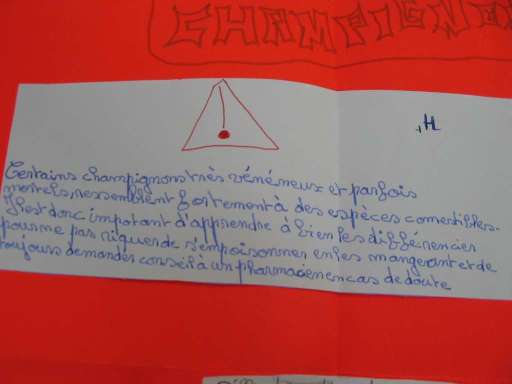 CHAMPIGNO
H
Certains champignons très vénéneux et parfois
mortels, ressemblent fortement à des espèces comestibles.
Il est donc important d'apprendre à bien les différencier
pour ne pas risquer de s'empoisonner en les mangeant et de
toujours demander conseil à un pharmacien en cas de doute